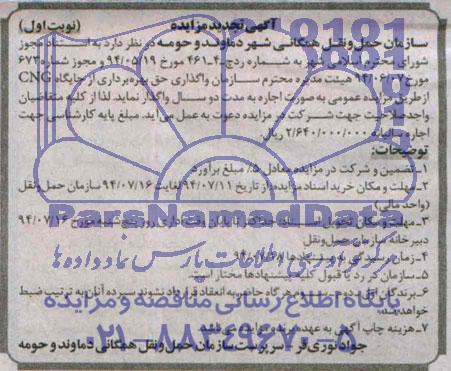 آگهی تجدید مزایده (نوبت اول)
سازمان حمل و نقل همگانی شهر دماوند و حومه در نظر دارد به استناد مجوز
شورای محترم اسلامی شهر به شماره ردج-۴-۴۶۱ مورخ ۹۴/۰۵/۱۹ و مجوز شماره ۶۷۳
مورخ ۹۴/۰۶/۰۷ هیئت مدیره محترم سازمان واگذاری حق بهره‌برداری از جایگاه CNG
از طریق مزایده عمومی به صورت اجاره به مدت دو سال واگذار نماید. لذا از کلیه متقاضیان
واجد صلاحیت جهت شرکت در مزایده دعوت به عمل می‌آید. مبلغ پایه کارشناسی جهت
اجاره سالیانه ۲/۶۴۰/۰۰۰/۰۰۰ ریال.
توضیحات:
۱-تضمین و شرکت در مزایده معادل ۵٪ مبلغ برآورد
۲-مهلت و مکان خرید اسناد مزایده از تاریخ ۹۴/۰۷/۱۱ لغایت ۹۴/۰۷/۱۶ سازمان حمل و نقل
(واحد مالی)
۳-مهلت و مکان تحویل اسناد حداکثر تا پایان وقت اداری روز پنج‌شنبه مورخ ۹۴/۰۷/۱۶
دبیرخانه سازمان حمل و نقل
۴-زمان رسیدگی به پیشنهادها
۵-سازمان در رد یا قبول کلیه پیشنهادها مختار است.
۶-برندگان اول و دوم و سوم هرگاه حاضر به انعقاد قرارداد نشوند سپرده آنان به ترتیب ضبط
خواهد شد.
۷-هزینه چاپ آگهی به عهده برنده مزایده می‌باشد.
جواد نوری فر - سرپرست سازمان حمل و نقل همگانی دماوند و حومه
ParsNamadData
پارس نماد داده‌ها
پایگاه اطلاع رسانی مناقصه و مزایده
۰۲۱-۸۸۳۴۹۶۷۰-۵